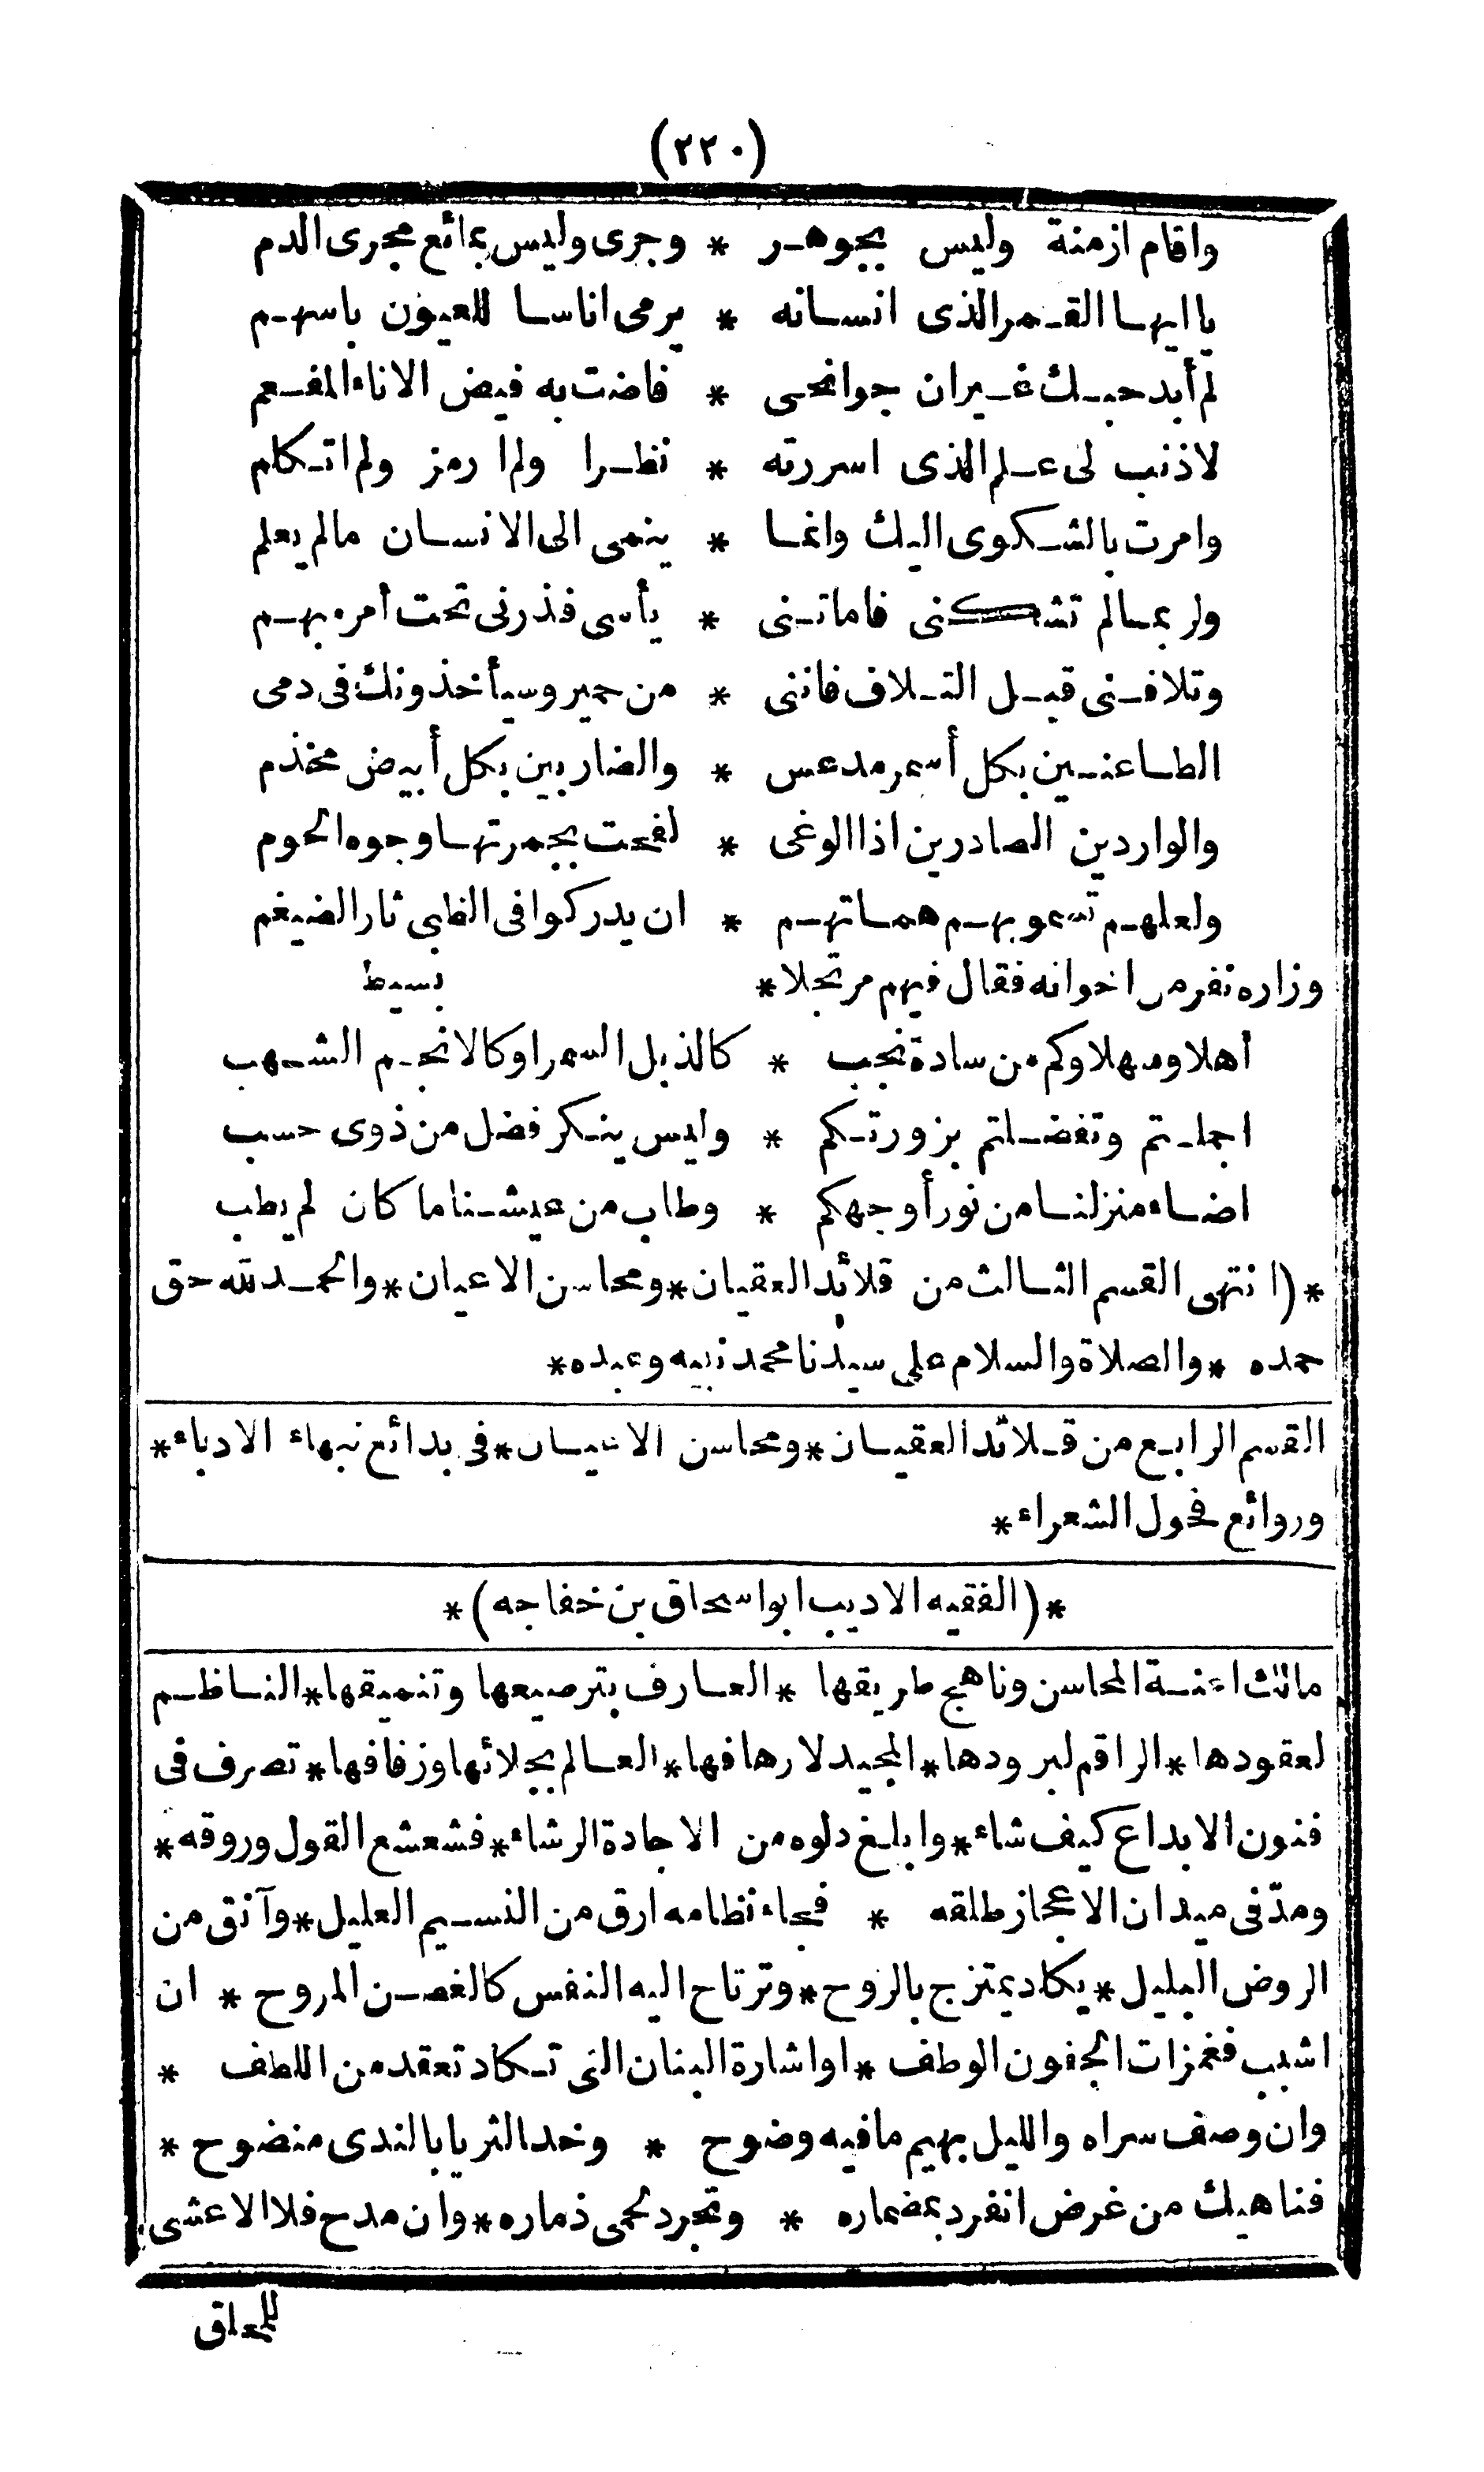 (٢٢٠)
واقام ازمنة وليس بجوهر * وجرى وليس بمائع مجرى الدم
يا ايها القمر الذى انسانه * يرمى اناسا للعيون باسهم
لم أبد حبك غير ان جوانحى * فاضت به فيض الاناء المفعم
لا ذنب لى علم الذى اسررته * نظرا ولم ارمز ولم اتكلم
وامرت بالشكوى اليك وانما * ينمى الى الانسان مالم يعلم
ولربما لم تشكنى فاماتنى * يأسى فذرنى تحت أمر مبهم
وتلافنى قبل التلاف فاننى * من حمير وسيأخذونك فى دمى
الطاعنين بكل أسمر مدعس * والضاربين بكل أبيض مخذم
والواردين الصادرين اذا الوغى * لفحت بجمرتها وجوه الحوم
ولعلهم تسمو بهم هماتهم * ان يدركوا فى الظبى ثار الضيغم
وزاره نفر من اخوانه فقال فيهم مرتجلا * بسيط
أهلا وسهلا وكم من سادة نجب * كالذبل السمر او كالانجم الشهب
اجملتم وتفضلتم بزورتكم * وليس ينكر فضل من ذوى حسب
اضاء منزلنا من نور أوجهكم * وطاب من عيشنا ما كان لم يطب
* (انتهى القسم الثالث من قلائد العقيان * ومحاسن الاعيان * والحمد لله حق
حمده * والصلاة والسلام على سيدنا محمد نبيه وعبده *
القسم الرابع من قلائد العقيان * ومحاسن الاعيان * فى بدائع نبهاء الادباء *
وروائع فحول الشعراء *
* (الفقيه الاديب ابو اسحاق بن خفاجه) *
مالك اعنة المحاسن وناهج طريقها * العارف بترصيعها وتنميقها * الناظم
لعقودها * الراقم لبرودها * المجيد لارهافها * العالم بجلائها وزفافها * تصرف فى
فنون الابداع كيف شاء * وابلغ دلوه من الاجادة الرشاء * فشعشع القول وروقه *
ومدّ فى ميدان الاعجاز طلقه * فجاء نظامه ارق من النسيم العليل * وآنق من
الروض البليل * يكاد يمتزج بالروح * وترتاح اليه النفس كالغصن المروح * ان
اشبب فغمزات الجفون الوطف * او اشارة البنان التى تكاد تعقد من اللطف *
وان وصف سراه والليل بهيم ما فيه وضوح * وخد الثريا بالندى منضوح *
فناهيك من غرض انفرد بمضماره * وتجرد لحمى ذماره * وان مدح فلا الاعشى
للمحلق